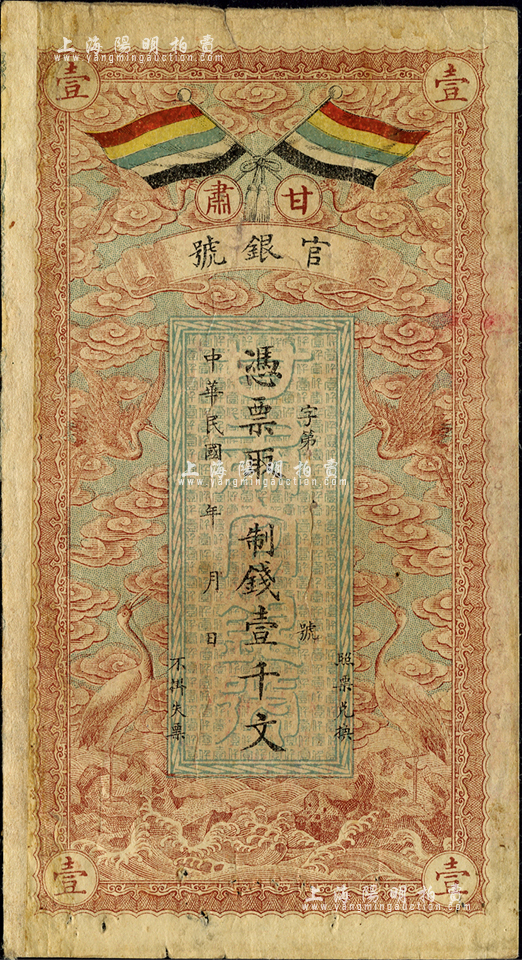 上海陽明拍賣
www.yangmingauction.com
壹 壹
甘肅
官銀號
字第 號
憑票取 制錢壹千文
中華民國 年 月 日
照票兌換
不掛失票
上海陽明拍賣
www.yangmingauction.com
壹 壹
上海陽明拍賣
www.yangmingauction.com